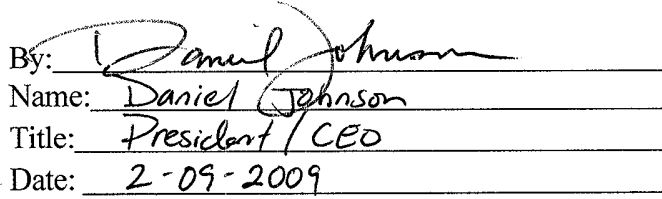 By: Daniel Johnson
Name: Daniel Johnson
Title: President / CEO
Date: 2-09-2009